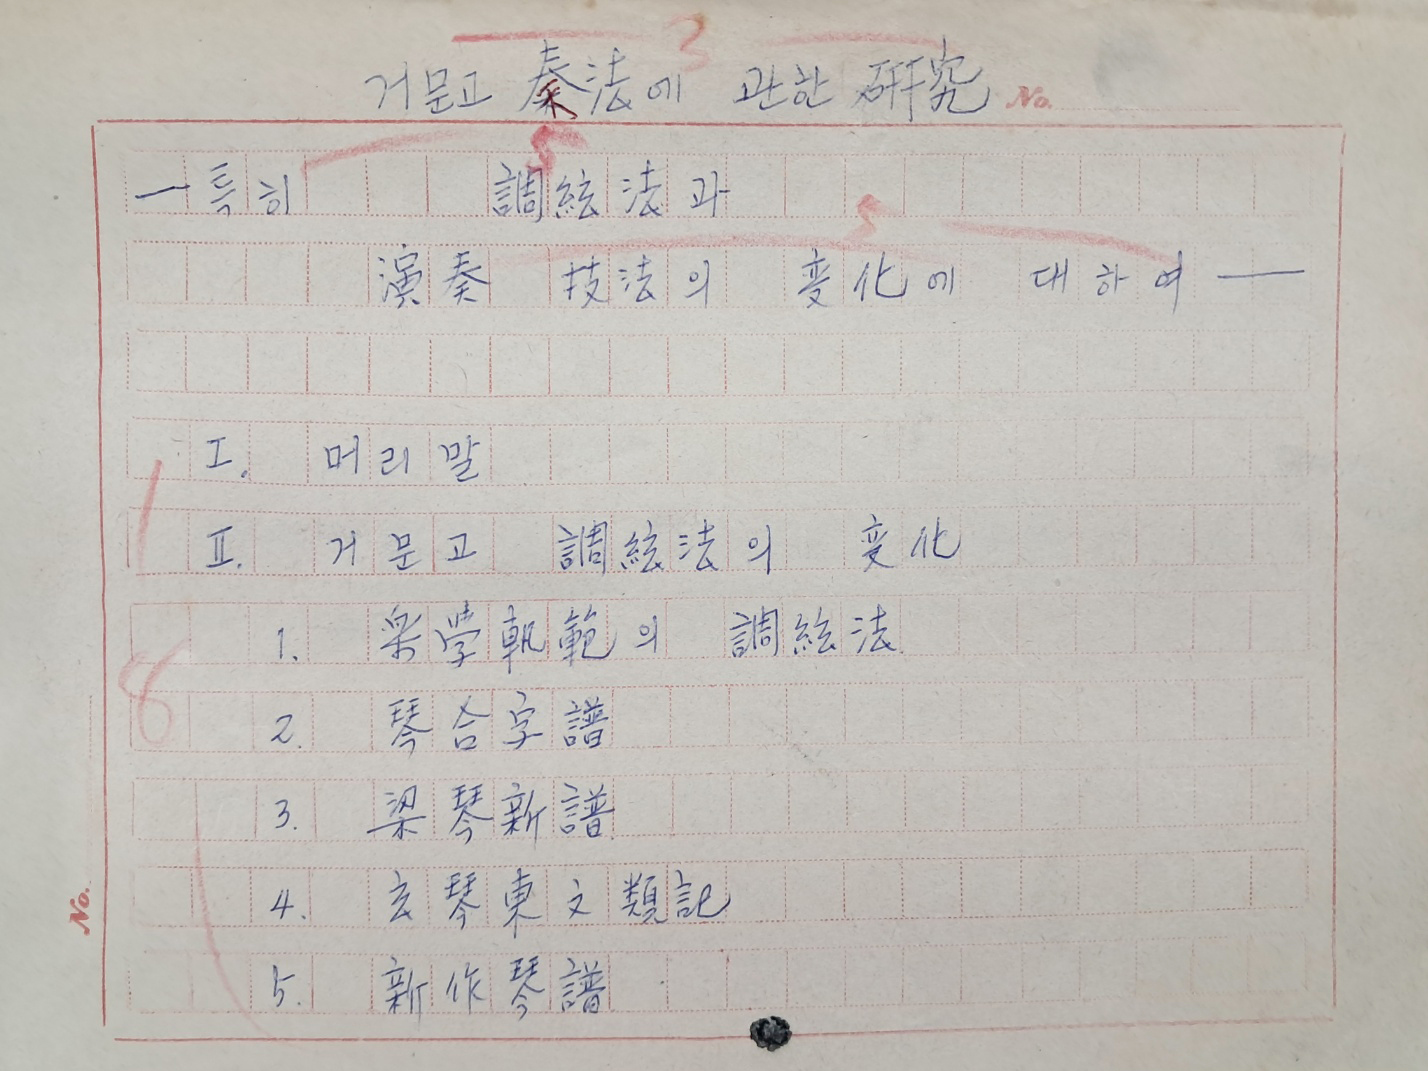 3
거문고 奏法에 관한 硏究 No.
5
—특히 調絃法과
5
演奏 技法의 変化에 대하여—
I. 머리말
II. 거문고 調絃法의 変化
1. 楽學軌範의 調絃法
8
2. 琴合字譜
3. 梁琴新譜
4. 玄琴東文類記
No.
5. 新作琴譜